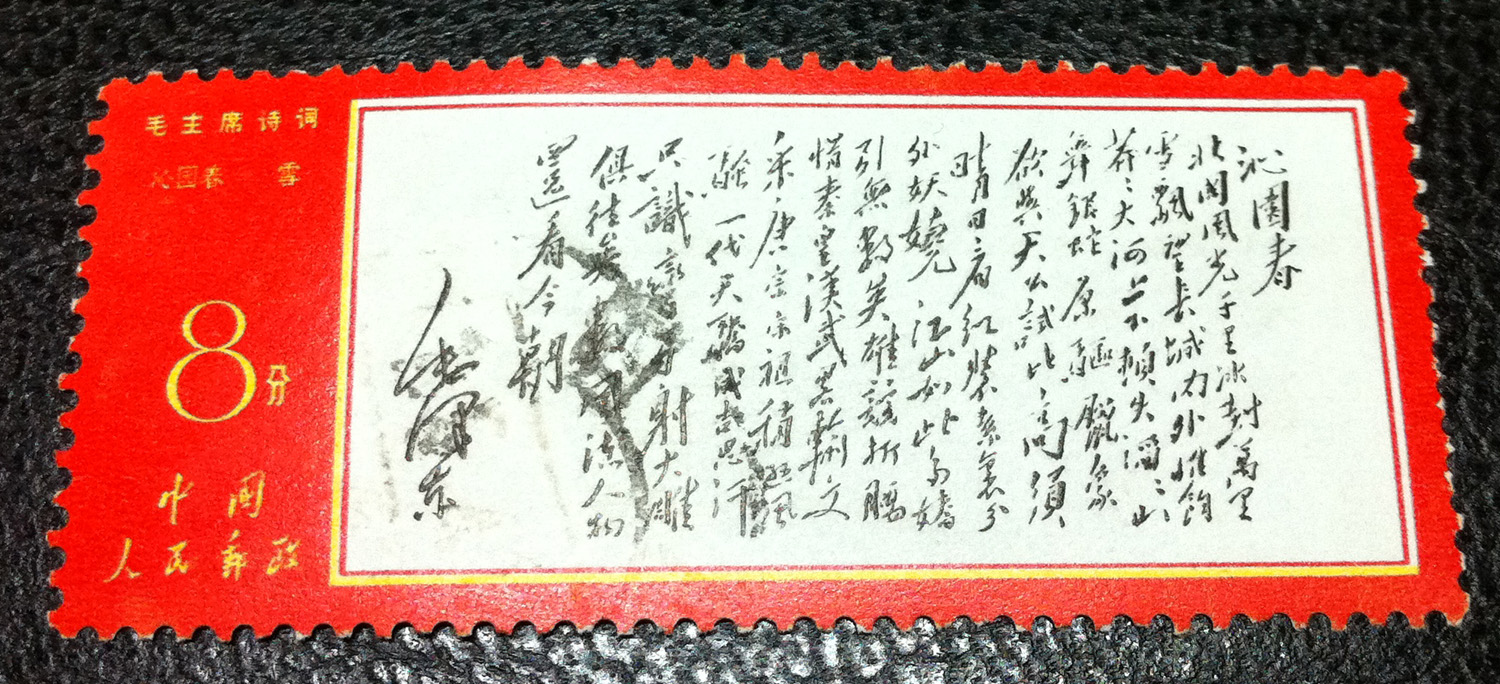 毛主席诗词
沁园春 雪
8分
中國
人民郵政
沁園春
北國風光千里冰封萬里
雪飄望長城内外惟餘
莽々大河上下頓失滔々山
舞銀蛇原驅臘象
欲與天公試比高須
晴日看紅裝素裹分
外妖嬈江山如此多嬌
引無數英雄競折腰
惜秦皇漢武略輸文
采唐宗宋祖稍遜風
騷一代天驕成吉思汗
只識彎弓射大雕
俱往矣數風流人物
還看今朝
毛澤東